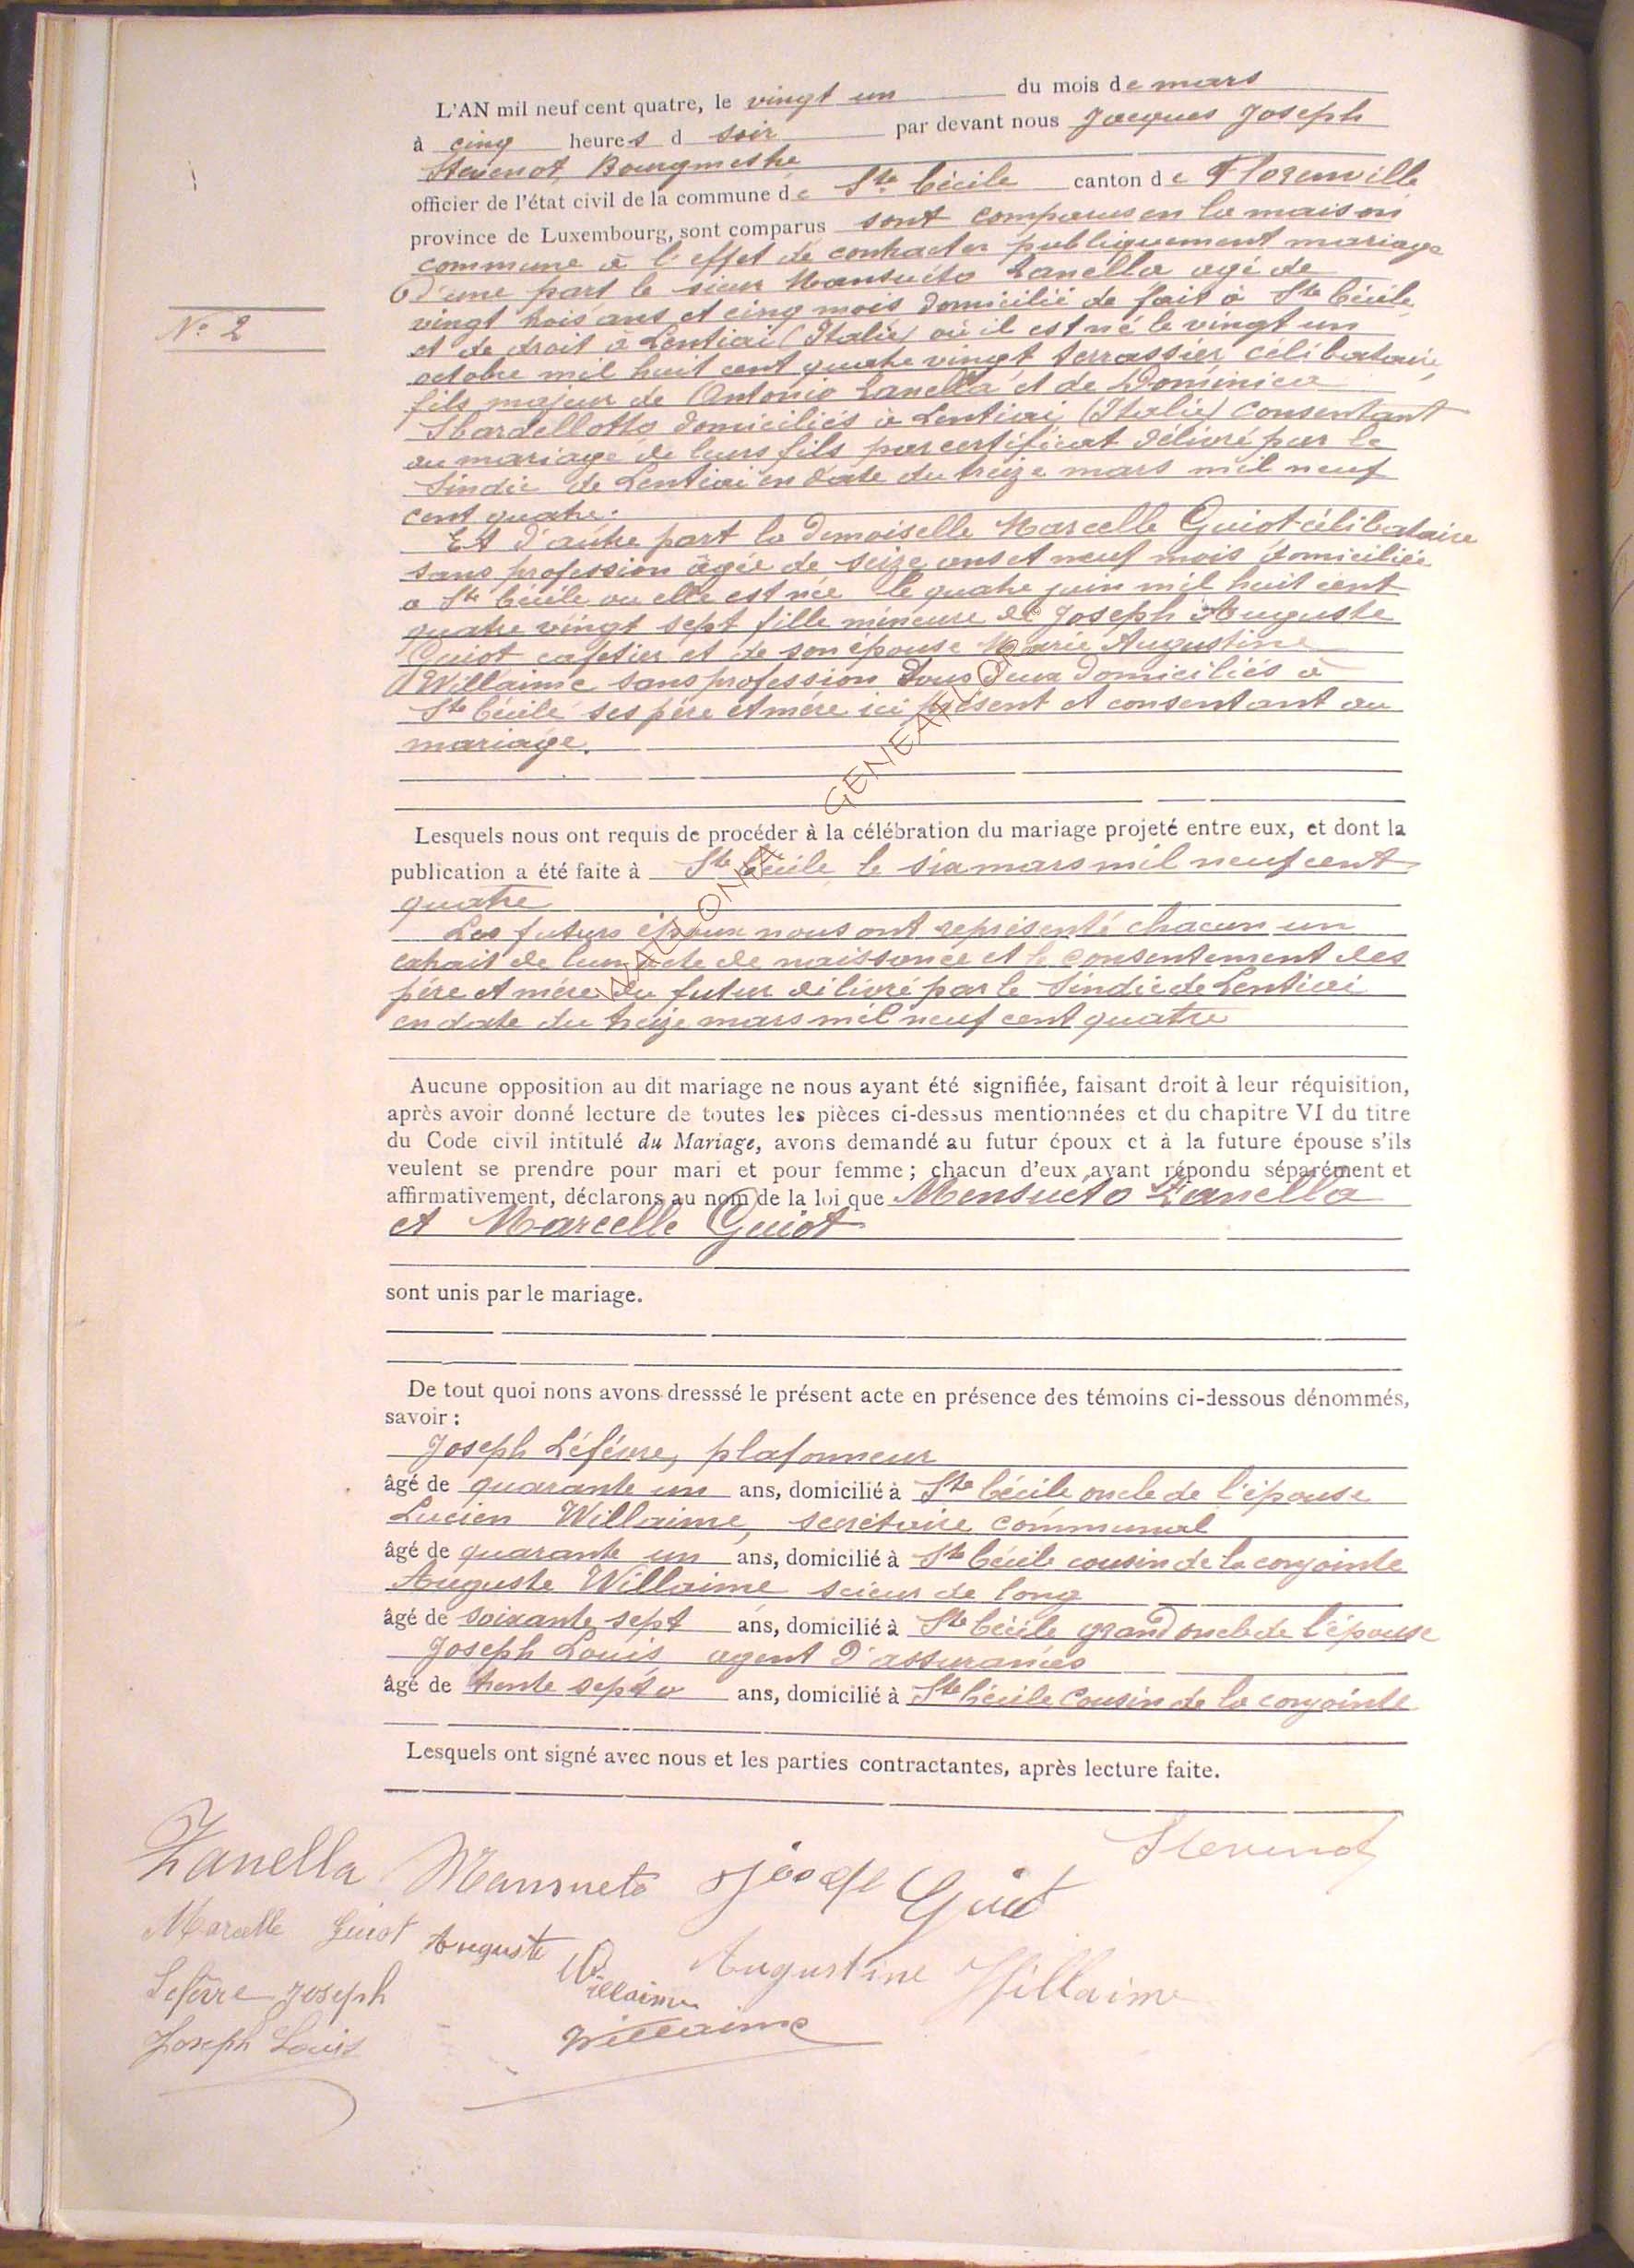 L'AN mil neuf cent quatre, le vingt un du mois de mars
à cinq heures d soir par devant nous Jacques Joseph
Stevenot, Bourgmestre
officier de l'état civil de la commune de Ste Cécile canton de Florenville
province de Luxembourg, sont comparus sont comparus en la maison
commune à l'effet de contracter publiquement mariage
D'une part le sieur Mansueto Zanella agé de
vingt trois ans et cinq mois domicilié de fait à Ste Cécile
et de droit à Lentiai (Italie) où il est né le vingt un
octobre mil huit cent quatre vingt terrassier célibataire,
fils majeur de Antonio Zanella et de Dominica
Sbardellotto domiciliés à Lentiai (Italie) consentant
au mariage de leurs fils par certificat délivré par le
Sindic de Lentiai en date du treize mars mil neuf
cent quatre.
N° 2
Et d'autre part la demoiselle Marcelle Guiot célibataire
sans profession âgée de seize ans et neuf mois domiciliée
a Ste Cécile ou elle est née le quatre juin mil huit cent
quatre vingt sept fille mineure de Joseph Auguste
Guiot cafetier et de son épouse Marie Augustine
Willaime sans profession tous deux domiciliés à
Ste Cécile ses père et mère ici présent et consentant au
mariage.
Lesquels nous ont requis de procéder à la célébration du mariage projeté entre eux, et dont la
publication a été faite à Ste Cécile le six mars mil neuf cent
quatre
Les futurs époux nous ont représenté chacun un
extrait de leur acte de naissance et le consentement des
père et mère du futur délivré par le Sindic de Lentiai
en date du treize mars mil neuf cent quatre
WALLONIA GENEALOP
Aucune opposition au dit mariage ne nous ayant été signifiée, faisant droit à leur réquisition,
après avoir donné lecture de toutes les pièces ci-dessus mentionnées et du chapitre VI du titre
du Code civil intitulé du Mariage, avons demandé au futur époux et à la future épouse s'ils
veulent se prendre pour mari et pour femme ; chacun d'eux ayant répondu séparément et
affirmativement, déclarons au nom de la loi que Mensueto Zanella
et Marcelle Guiot
sont unis par le mariage.
De tout quoi nons avons dresssé le présent acte en présence des témoins ci-dessous dénommés,
savoir :
Joseph Léfévre, plafonneur
âgé de quarante un ans, domicilié à Ste Cécile oncle de l'épouse
Lucien Willaime, secrétaire communal
âgé de quarante un ans, domicilié à Ste Cécile cousin de la conjointe
Auguste Willaime scieur de long
âgé de soixante sept ans, domicilié à Ste Cécile grand oncle de l'épouse
Joseph Louis agent d'assurances
âgé de trente sept ans, domicilié à Ste Cécile Cousin de la conjointe
Lesquels ont signé avec nous et les parties contractantes, après lecture faite.
Stevenot
Zanella Mansueto Joseph Guiot
Marcelle Guiot Auguste Willaime Augustine Willaime
Lefèvre Joseph
Joseph Louis Willaime